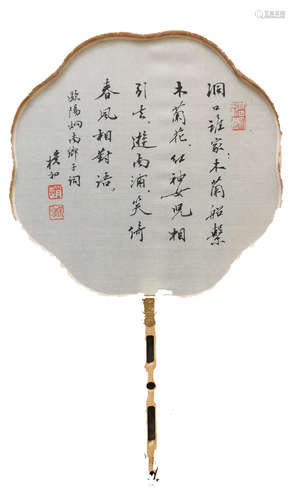 洞口誰家木蘭船繫
木蘭花紅袖女郎相
引去遊南浦笑倚
春風相對語
歐陽炯南鄉子詞
樸初